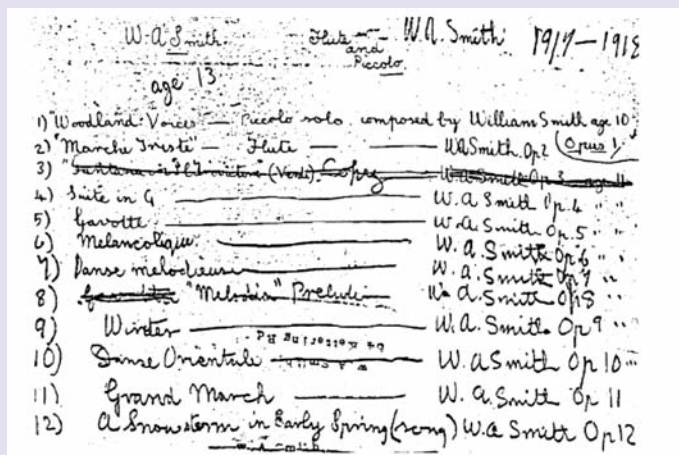 W. A Smith. Flute and Piccolo W. A. Smith 1917 – 1918
age 13
1) "Woodland Voices" – Piccolo solo. composed by William Smith age 10
2) "Marche Triste" – Flute – W A Smith. Op 2 (Opus 1)
3) "Fantasia on Il Trovatore" (Verdi). Copy W. A. Smith Op. 3 age 11
4) Suite in G W. A Smith Op. 4 " "
5) Gavotte W. A. Smith Op. 5 " "
6) Melancolique W. A. Smith Op 6 " "
7) Danse melodieuse W. A. Smith Op 7 " "
8) "Melodia" Prelude W. A. Smith Op 8 " "
9) Winter W. A. Smith Op 9 " "
64 Kettering Rd.
10) Danse Orientale W. A Smith Op 10 "
W A Smith
11) Grand March W. A. Smith Op 11
12) A Snowstorm in Early Spring (song) W. A Smith Op 12